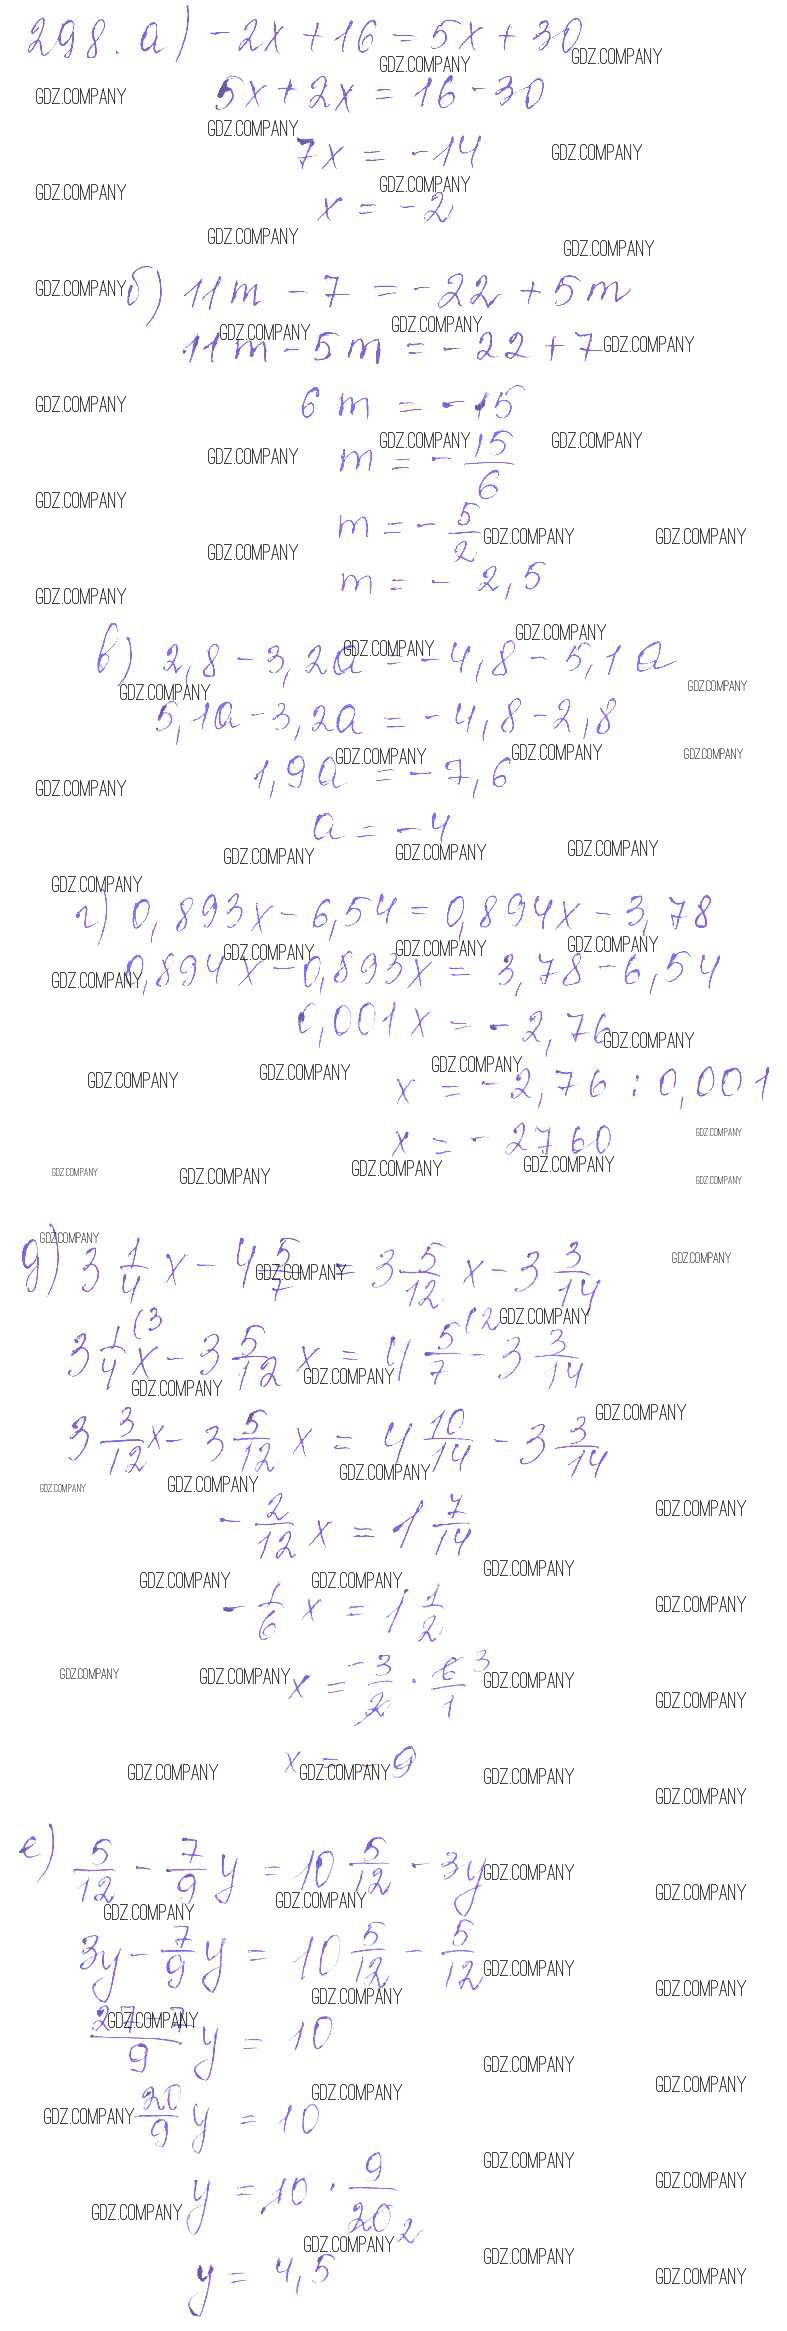 298. а) -2x + 16 = 5x + 30
5x + 2x = 16 - 30
7x = -14
x = -2
б) 11m - 7 = -22 + 5m
11m - 5m = -22 + 7
6m = -15
m = - 15/6
m = - 5/2
m = - 2,5
в) 2,8 - 3,2a = -4,8 - 5,1a
5,1a - 3,2a = -4,8 - 2,8
1,9a = -7,6
a = -4
г) 0,893x - 6,54 = 0,894x - 3,78
0,894x - 0,893x = 3,78 - 6,54
0,001x = -2,76
x = -2,76 : 0,001
x = -2760
д) 3 1/4 x - 4 5/7 = 3 5/12 x - 3 3/14
3 1/4 (3 x - 3 5/12 x = 4 5/7 (2 - 3 3/14
3 3/12 x - 3 5/12 x = 4 10/14 - 3 3/14
- 2/12 x = 1 7/14
- 1/6 x = 1 1/2
x = -3/2 · 6/1 3
x = -9
е) 5/12 - 7/9 y = 10 5/12 - 3y
3y - 7/9 y = 10 5/12 - 5/12
27-7/9 y = 10
20/9 y = 10
y = 10 · 9/20 2
y = 4,5
GDZ.COMPANY